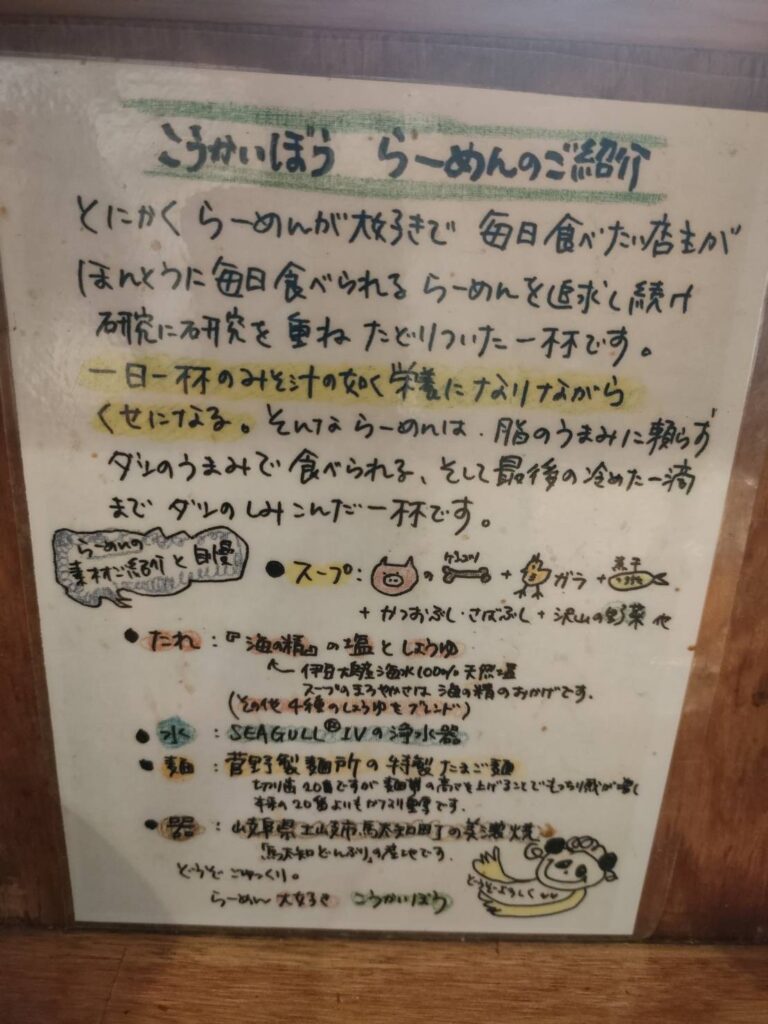 こうかいぼう らーめんのご紹介
とにかく らーめんが 大好きで 毎日食べたい店主が
ほんとうに毎日食べられる らーめんを追求し続け
研究に研究を重ね たどりついた一杯です。
一日一杯のみそ汁の如く栄養になりながら
くせになる。そんな らーめんは、脂のうまみに頼らず
ダシのうまみで食べられる、そして最後の冷めた一滴
まで ダシのしみこんだ一杯です。
らーめんの
素材ご紹介と自慢
●スープ: の ゲンコツ + ガラ + 煮干
+ かつおぶし・さばぶし + 沢山の野菜 他
●たれ:『海の精』の塩としょうゆ
← 伊豆大島産海水100% 天然塩
スープのまろやかさは 海の精のおかげです。
(その他 4種のしょうゆをブレンド)
●水:SEAGULL® IVの浄水器
●麺:菅野製麺所の特製たまご麺
切り歯20番ですが 麺質の高さを上げることでもっちり感が増し
本来の20番よりも
●器:岐阜県土岐市駄知町の美濃焼
「駄知どんぶり」の産地です。
どうぞごゆっくり。
らーめん 大好き こうかいぼう
どうぞよろしく